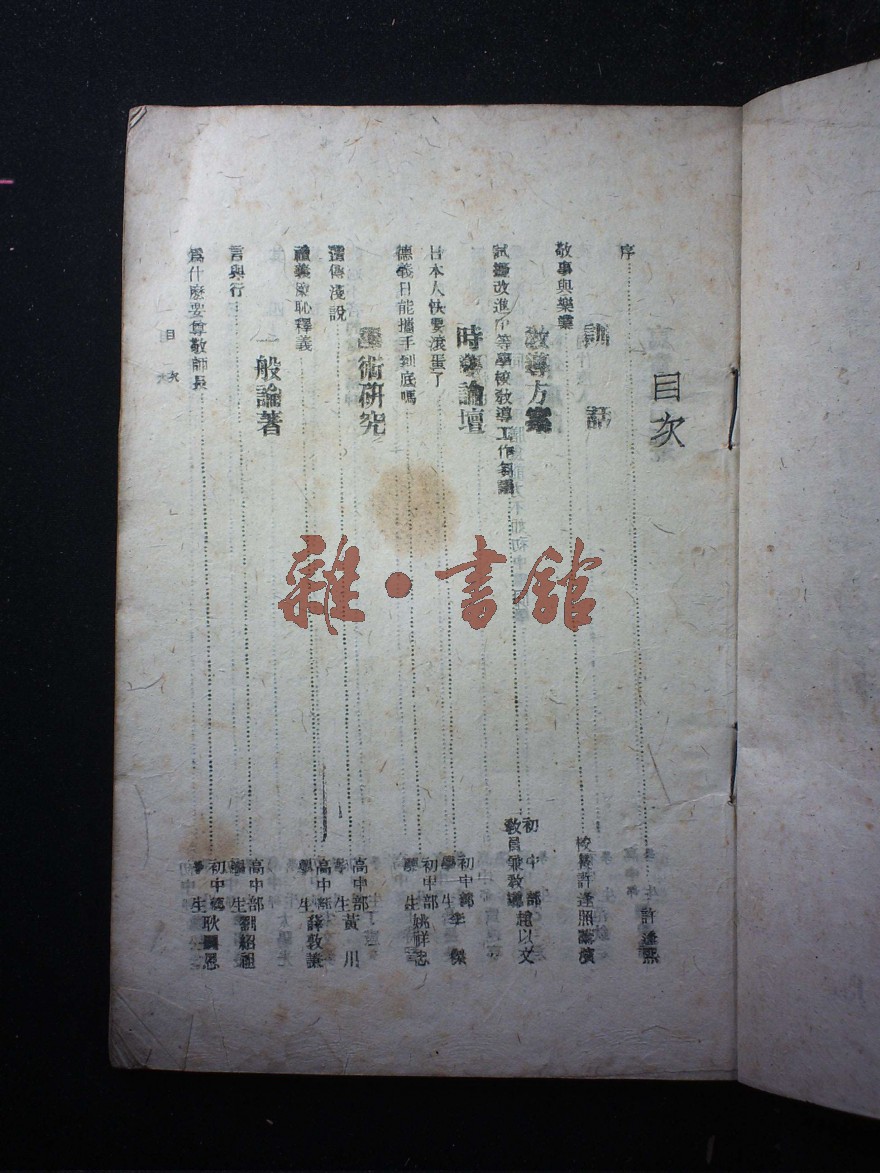 目次
序……許逢熙
訓話
敬事與樂業……校長許逢熙講演
教導方案
試擬改進中等學校教導工作芻議……初中部教員兼教導趙以文
時事論壇
日本人快要滾蛋了……初中部學生李傑
德義日能攜手到底嗎……初中部學生姚祥志
學術研究
遺傳淺說……高中部學生黃川
禮義廉恥釋義……高中部學生薛敦讓
一般論著
言與行……高中部學生劉紹祖
爲什麼要尊敬師長……初中部學生耿恩
目次
一
雜·書館